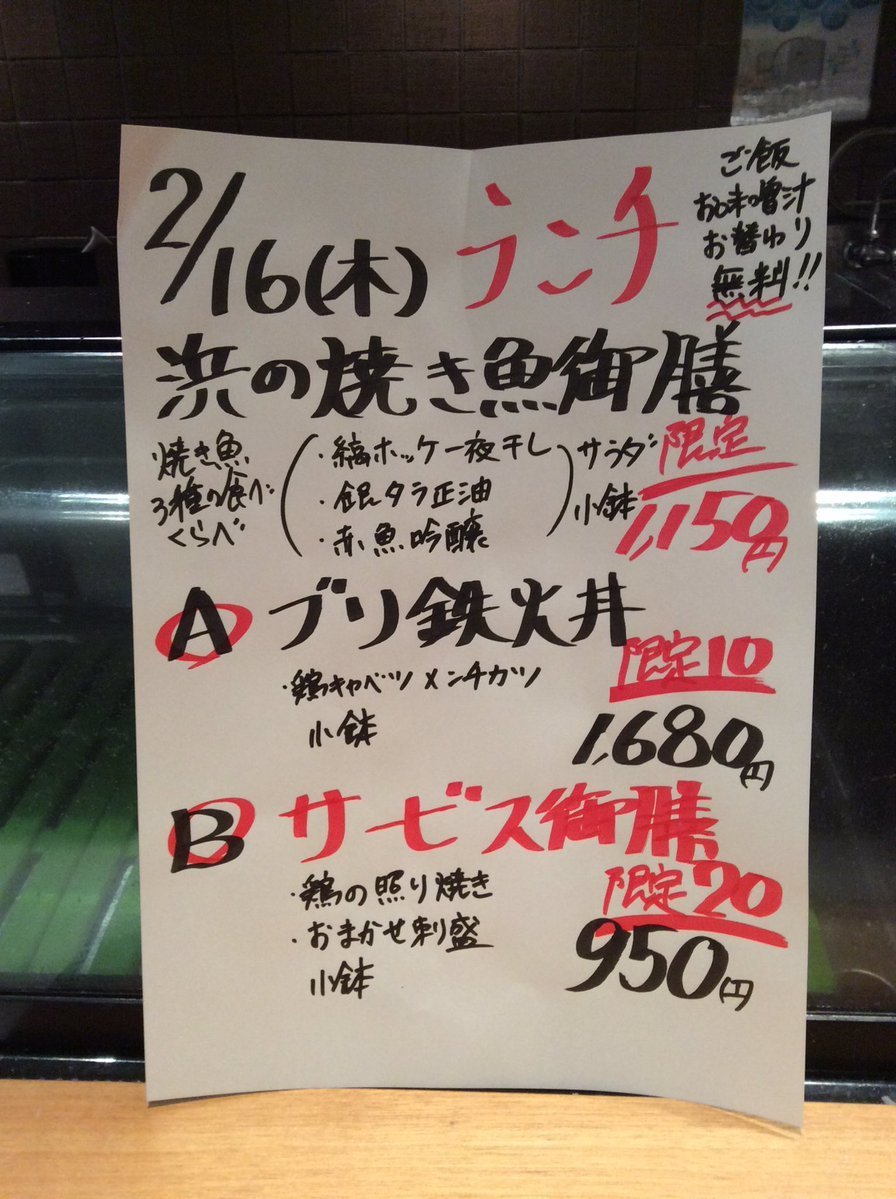 2/16(木) ランチ
ご飯
お味噌汁
お替わり
無料!!
浜の焼き魚御膳
焼き魚
3種の食べ
くらべ
・縞ホッケ一夜干し
・銀タラ正油
・赤魚吟醸
サラダ
小鉢
限定
1,150円
A ブリ鉄火丼
・鶏キャベツメンチカツ
小鉢
限定10
1,680円
B サービス御膳
・鶏の照り焼き
・おまかせ刺盛
小鉢
限定20
950円